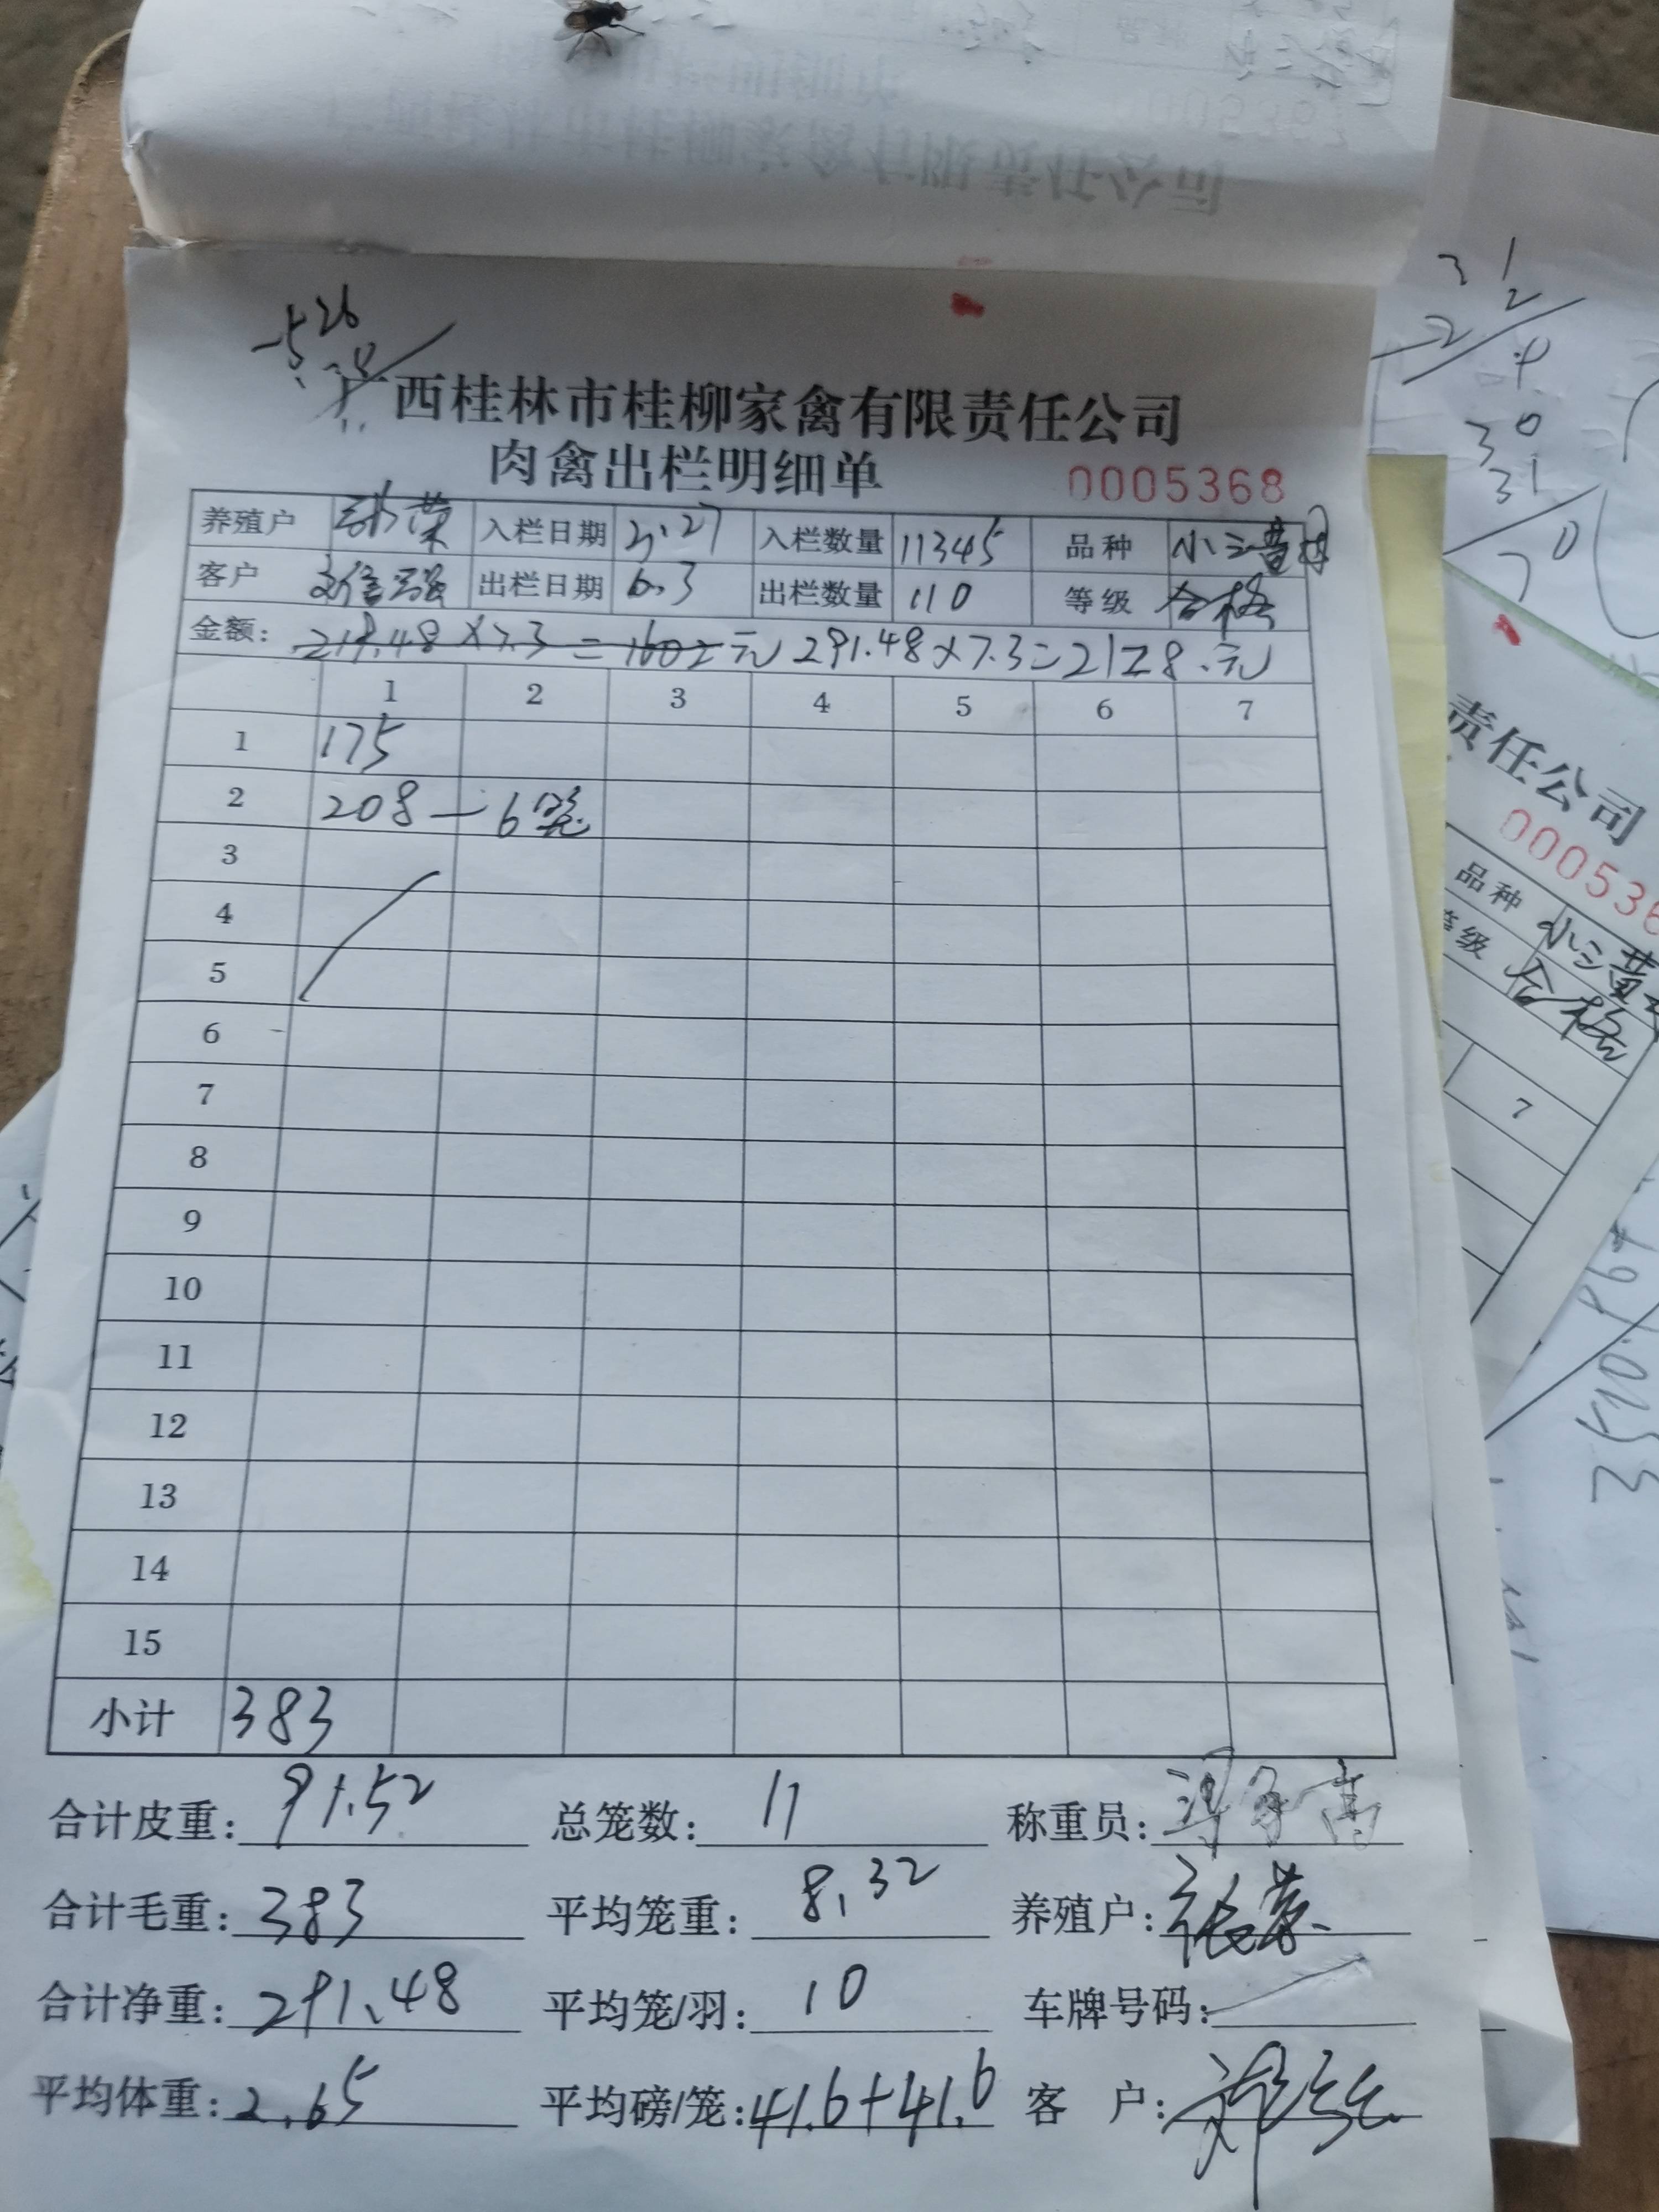 526
广西桂林市桂柳家禽有限责任公司
肉禽出栏明细单 0005368
养殖户 张荣 入栏日期 3.27 入栏数量 11345 品种 小三黄
客户 出栏日期 6.3 出栏数量 110 等级 合格
金额: 219.48×7.3=1602元 291.48×7.3=2128.元
1 2 3 4 5 6 7
1 175
2 208—6笼
3
4
5
6
7
8
9
10
11
12
13
14
15
小计 383
合计皮重: 91.52 总笼数: 11 称重员:
合计毛重: 383 平均笼重: 8.32 养殖户: 张荣
合计净重: 291.48 平均笼/羽: 10 车牌号码:
平均体重: 2.65 平均磅/笼: 41.6+41.6 客户:
责任公司
000536
品种 小三黄
等级 合格
7